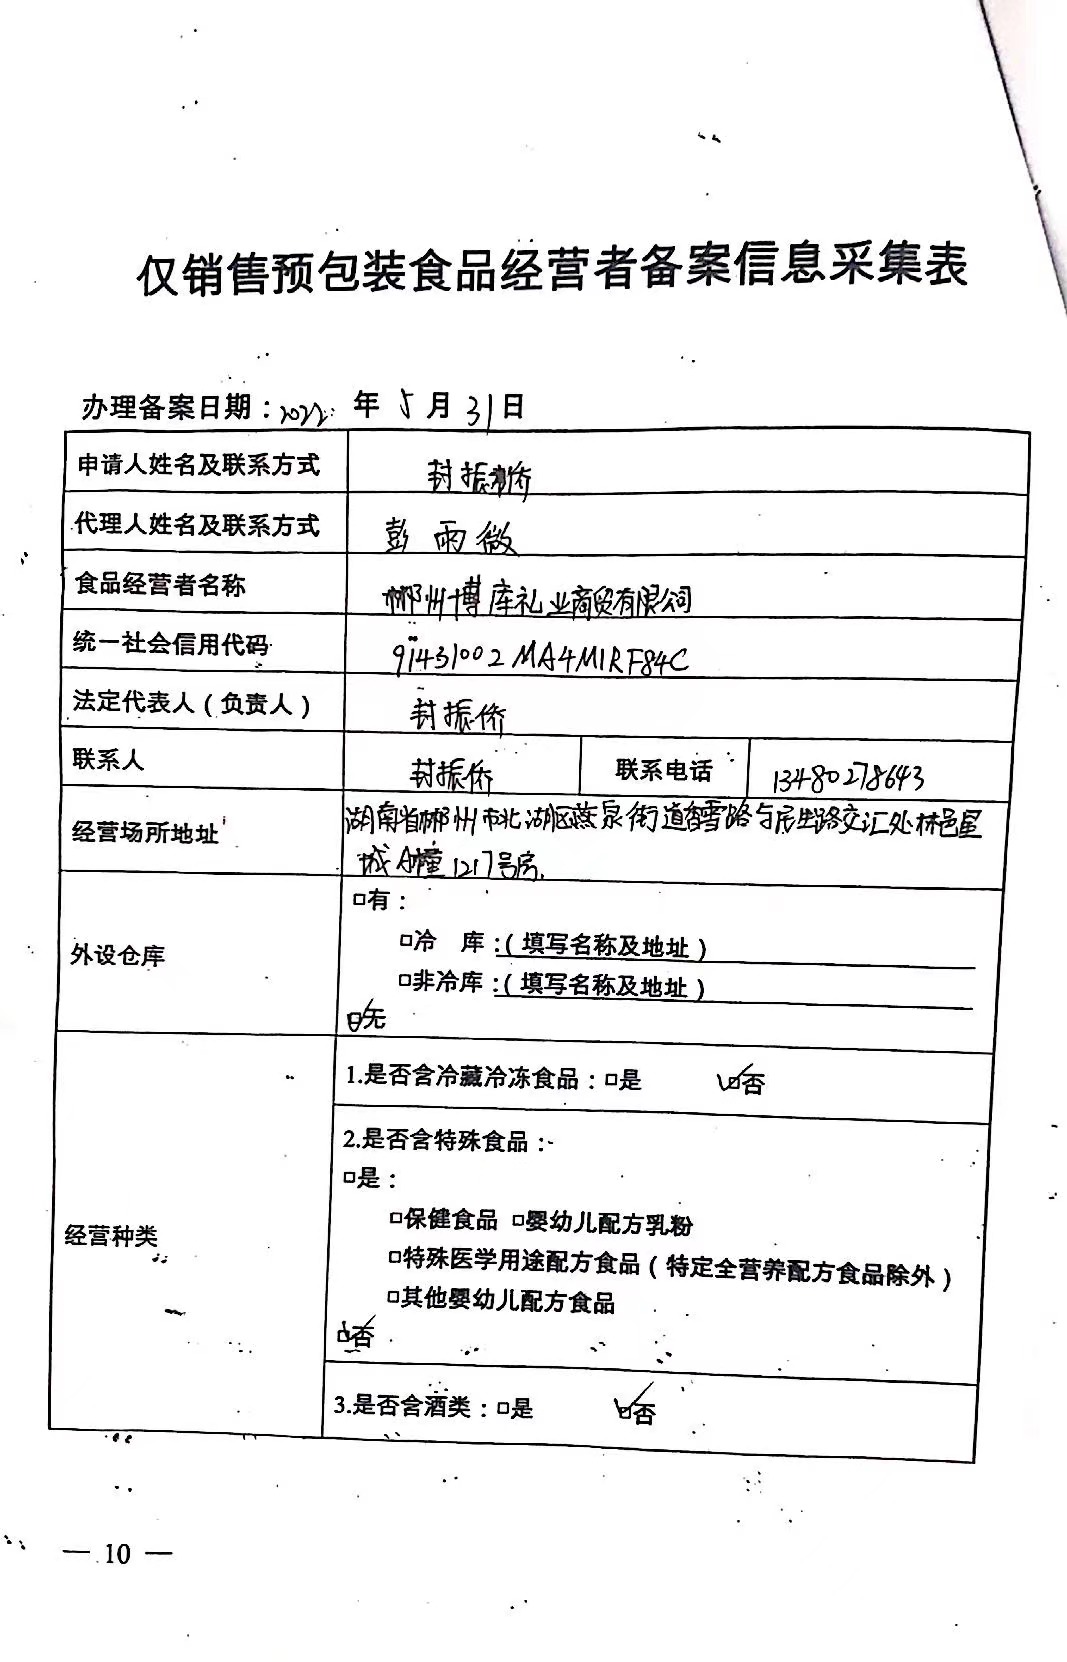 仅销售预包装食品经营者备案信息采集表
办理备案日期：2022 年 5 月 31 日
申请人姓名及联系方式 封振侨
代理人姓名及联系方式 彭雨微
食品经营者名称 郴州博库礼业商贸有限公司
统一社会信用代码 91431002MA4M1RF84C
法定代表人（负责人） 封振侨
联系人 封振侨 联系电话 13480278643
经营场所地址 湖南省郴州市北湖区燕泉街道香雪路与民生路交汇处林邑星
城A幢1217号房.
外设仓库
□有：
□冷 库：（填写名称及地址）
□非冷库：（填写名称及地址）
☑无
经营种类
1.是否含冷藏冷冻食品：□是 ☑否
2.是否含特殊食品：
□是：
□保健食品 □婴幼儿配方乳粉
□特殊医学用途配方食品（特定全营养配方食品除外）
□其他婴幼儿配方食品
☑否
3.是否含酒类：□是 ☑否
— 10 —